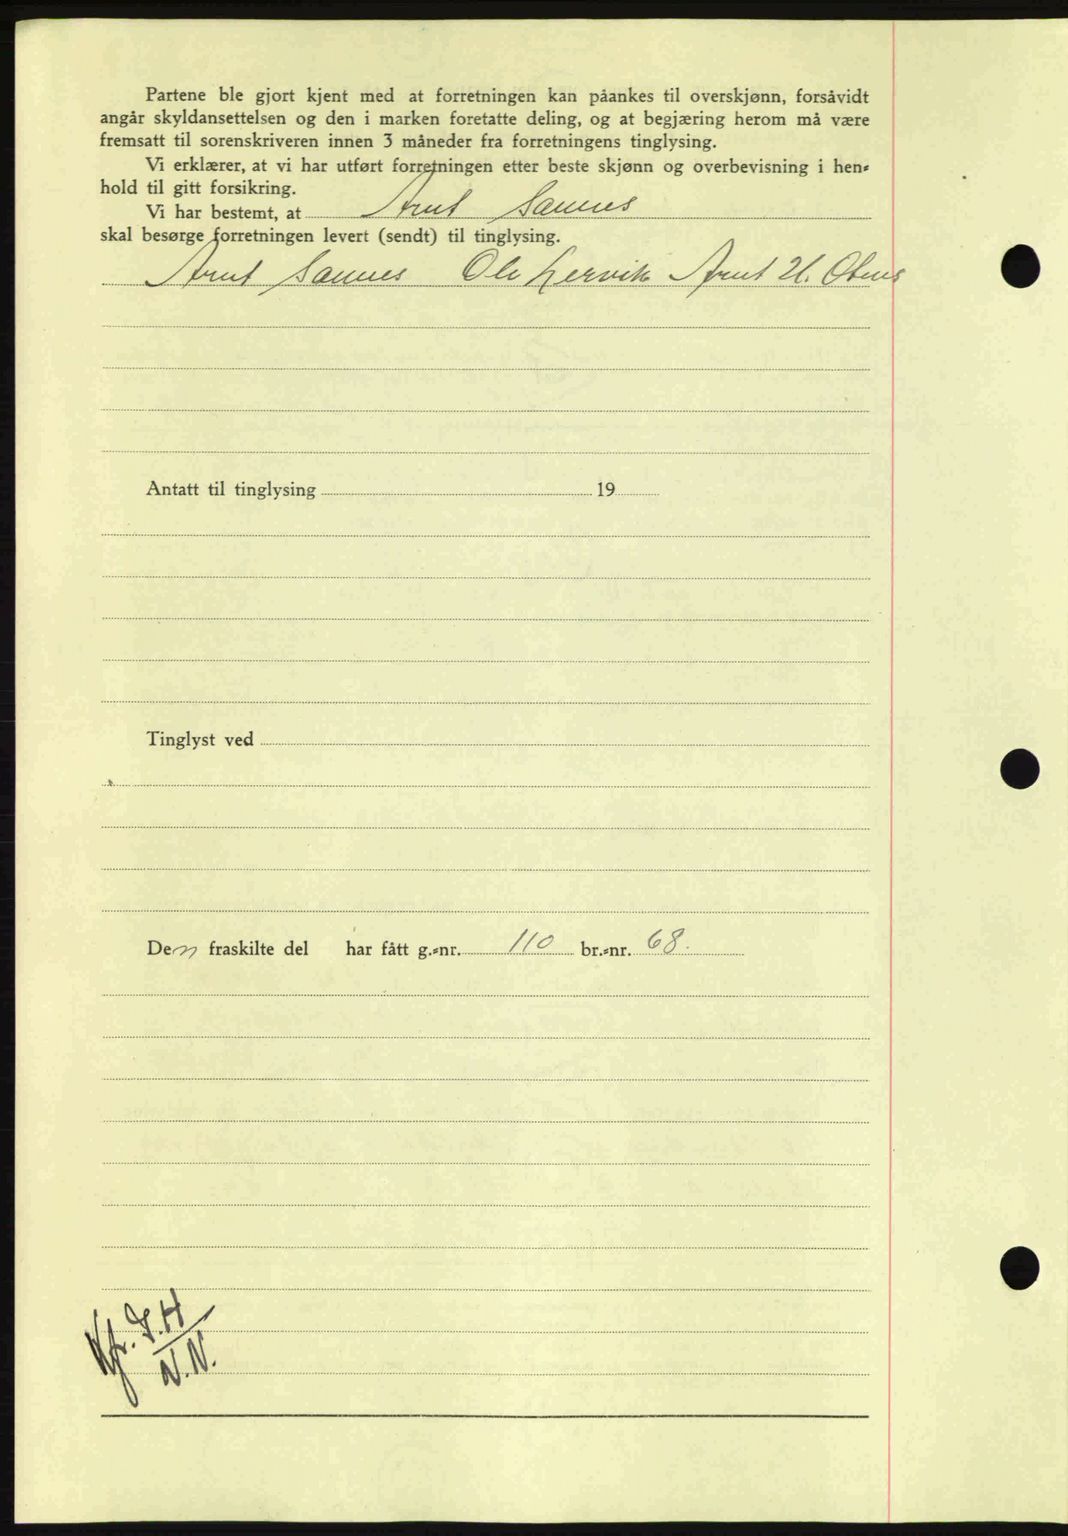 Partene ble gjort kjent med at forretningen kan påankes til overskjønn, forsåvidt
angår skyldansettelsen og den i marken foretatte deling, og at begjæring herom må være
fremsatt til sorenskriveren innen 3 måneder fra forretningens tinglysing.
Vi erklærer, at vi har utført forretningen etter beste skjønn og overbevisning i hen-
hold til gitt forsikring.
Vi har bestemt, at Arnt Saunes
skal besørge forretningen levert (sendt) til tinglysing.
Arnt Saunes Ole Lervik Arnt H. Otnes
Antatt til tinglysing 19
Tinglyst ved
Den fraskilte del har fått g.-nr. 110 br.-nr. 68.
Kfr. I.H
N.N.